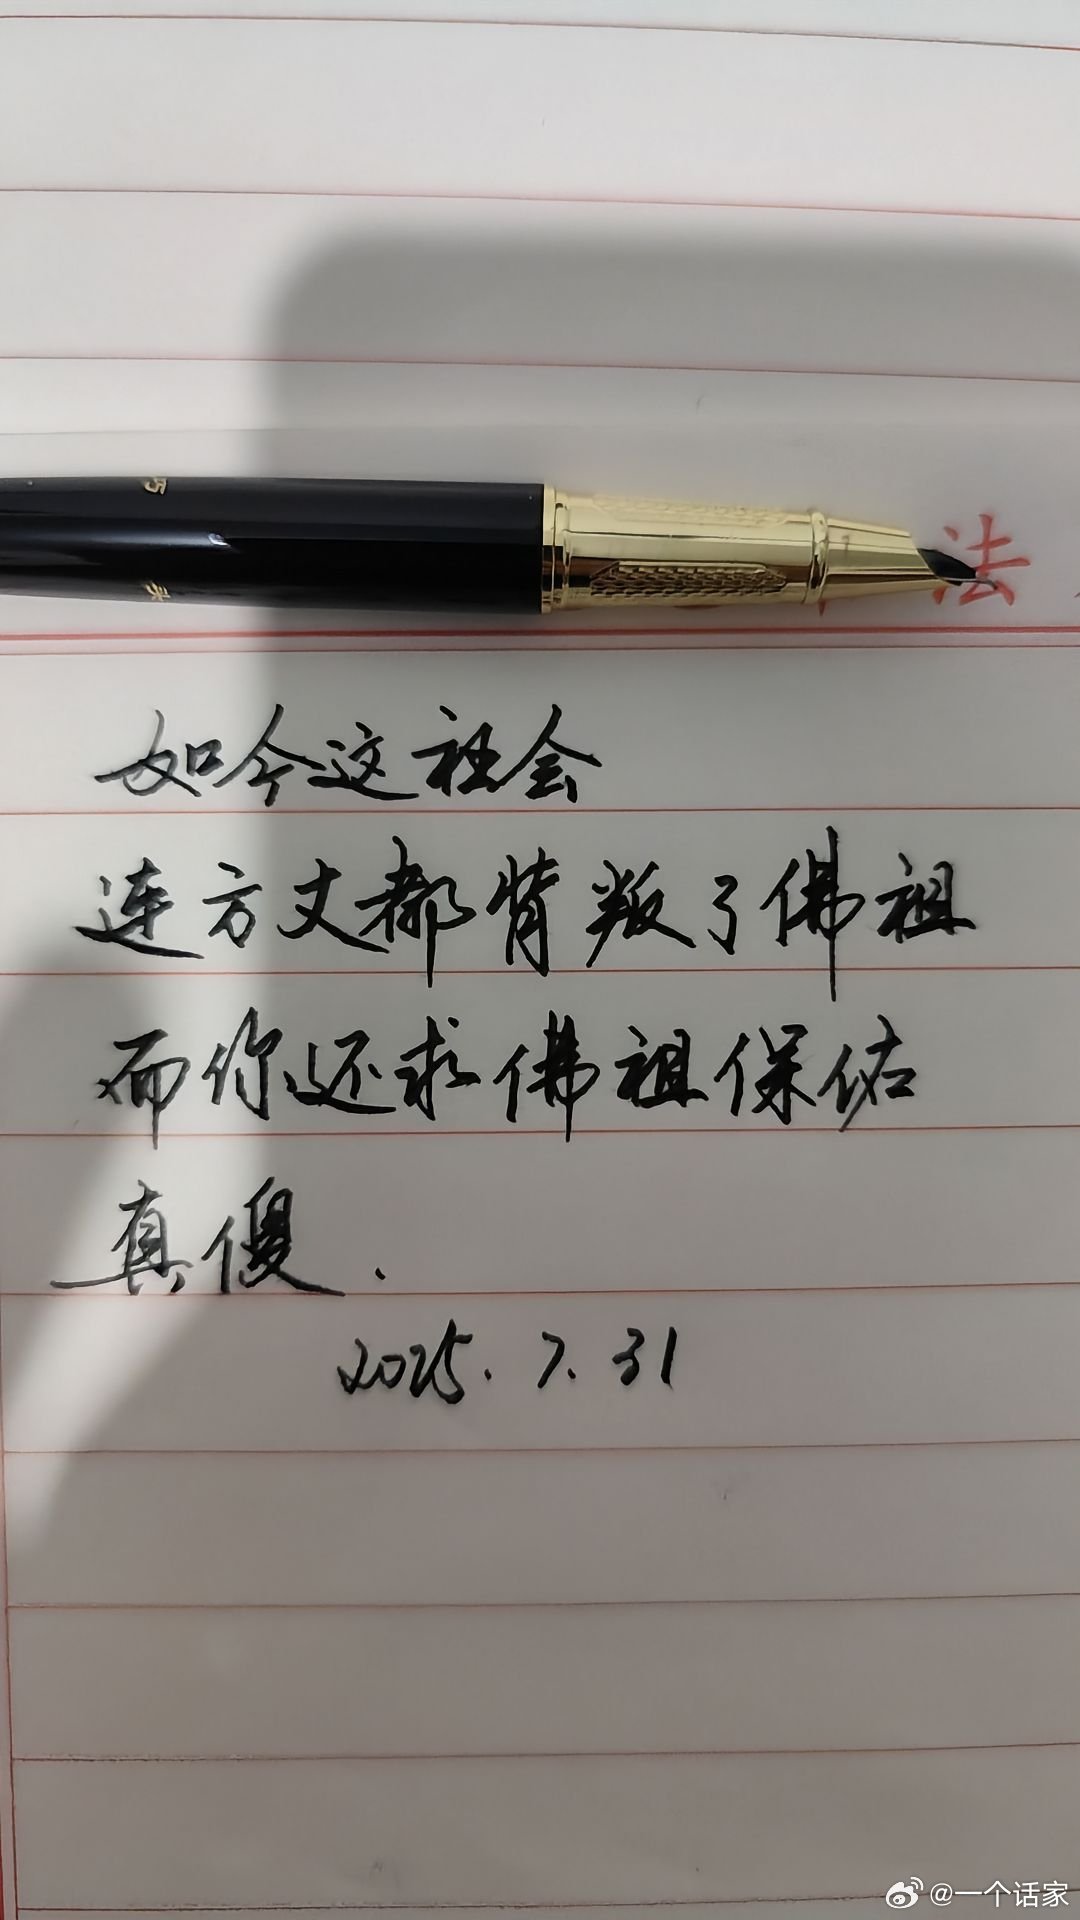 法
如今这社会
连方丈都背叛了佛祖
而你还求佛祖保佑
真傻.
2025.7.31
@一个话家